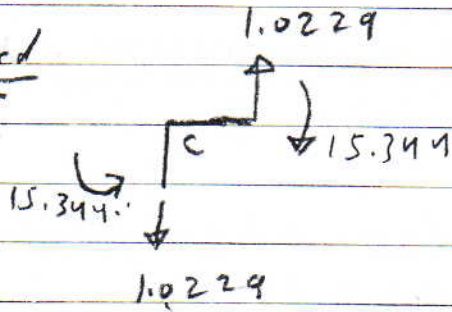 1.0229
C
15.344
15.344..
1.0229